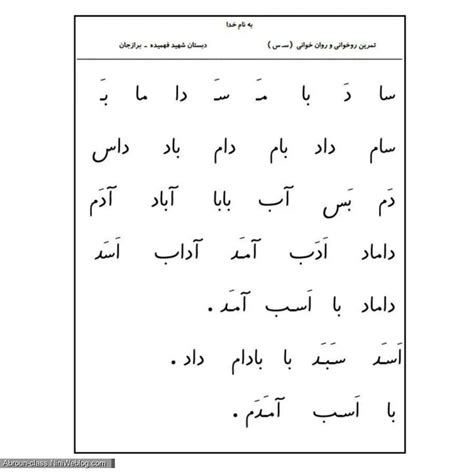 به نام خدا
تمرین روخوانی و روان خوانی (سـ س) دبستان شهید فهمیده - برازجان
سا دَ با مَـ سَـ دا ما بَـ
سام داد بام دام باد داس
دَم بَس آب بابا آباد آدَم
داماد اَدَب آمَد آداب اَسَد
داماد با اَسب آمَد .
اَسَد سَبَد با بادام داد .
با اَسب آمَدَم .
Abroun-class.NiniWeblog.com